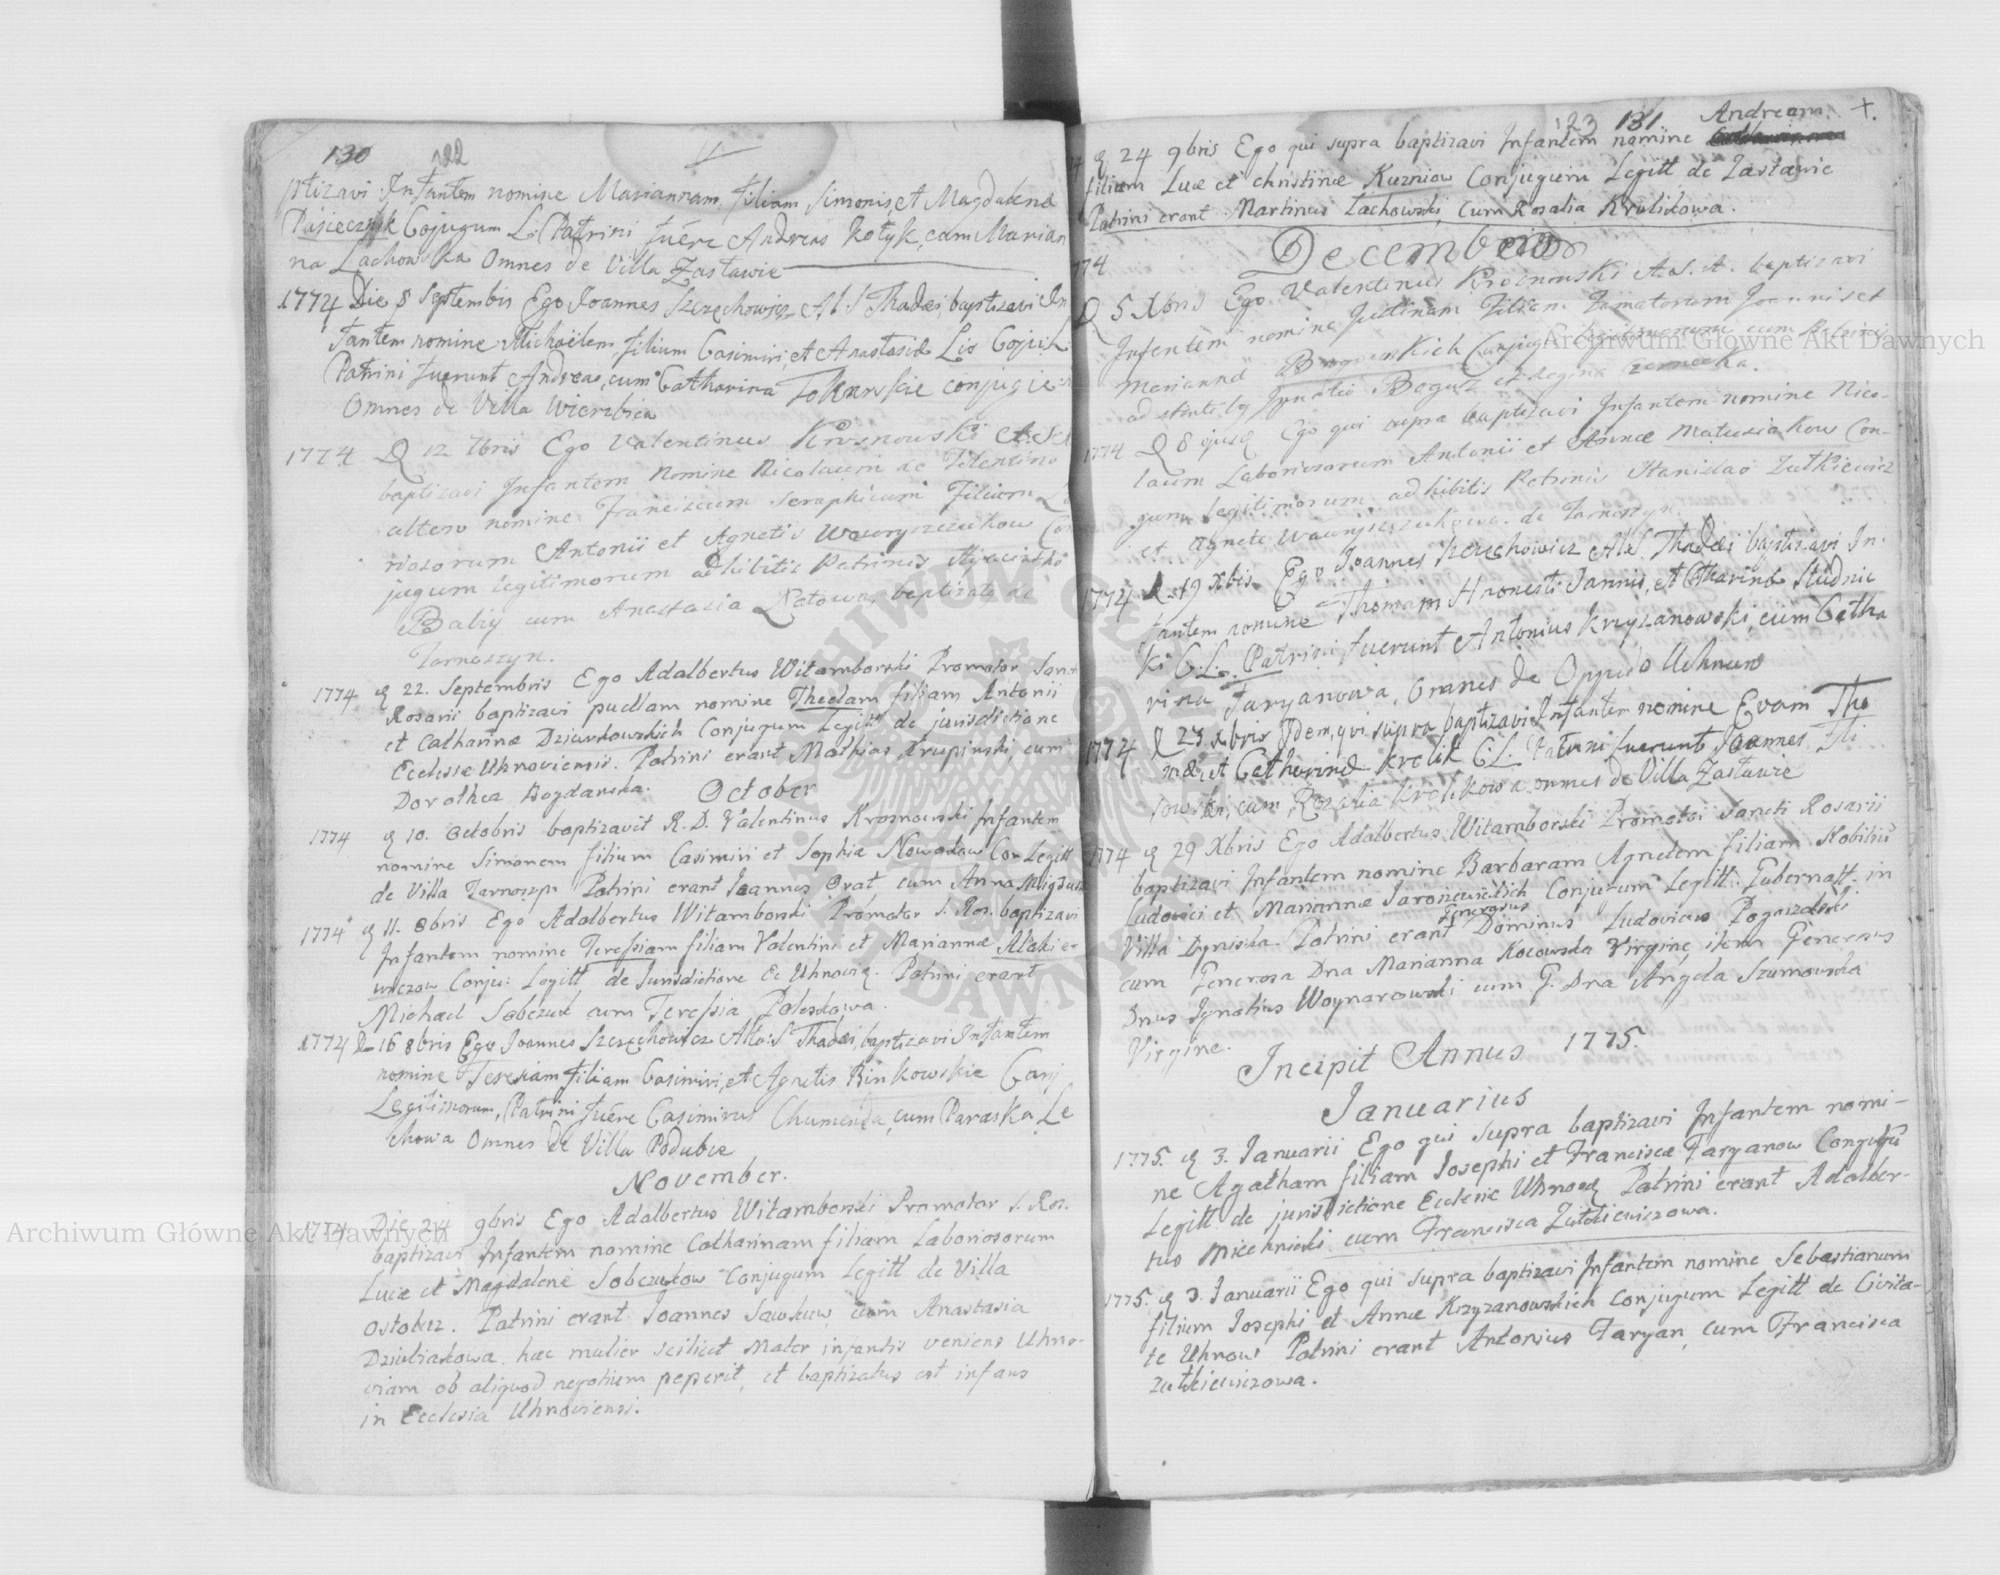 130 122
ptizavi Infantem nomine Mariannam, filiam Simonis, et Magdalena
Pasiecznk Cojugum L. Patrini fuére Andreas Kotyk, cum Marian
na Lachowska Omnes de Villa Zastawie
1774 Die 8 Septembris Ego Joannes Szczechowicz Al. S Thadæi, baptizavi In
fantem nomine Michaëlem, filium Casimiri, et Anastasiæ Lis Cojug L
Patrini fuerunt Andreas, cum Catharina Tokarskie conjugie
Omnes de Villa Wierzbica
1774 D 12 7bris Ego Valentinus Krosnowski A. S.
baptizavi Infantem Nomine Nicolaum de Tolentino
altero nomine Franciscum Seraphicum Filium
riosorum Antonii et Agnetis Wawryszczukow Con
jugum legitimorum adhibitis Patrinis Hyacintho
Baliy cum Anastasia baptizata de
Tarnoszyn.
1774 d 22. Septembris Ego Adalbertus Witamborski Promotor San
Rosarii baptizavi puellam nomine Theclam filiam Antonii
et Catharinæ Dziurkowskich Conjugum Legitt de jurisdictione
Ecclesiæ Uhnoviensis. Patrini erant Mathias Krupinski, cum
Dorothea Bogdanska.
October
1774 d 10. Octobris baptizavit R. D. Valentinus Krosnowski Infantem
nomine Simonem filium Casimiri et Sophiæ Nowadow Con Legitt
de Villa Tarnoszyn Patrini erant Joannes Orat cum Anna
1774 d 11. 8bris Ego Adalbertus Witamborski Promotor S. Ros. baptizavi
Infantem nomine Teressiam filiam Valentini et Mariannæ Makie-
wiczow Conju: Legitt de Jurisdictione Ec Uhnovia. Patrini erant
Michael Sobczuk cum Teressia Poleskowa.
1774 D 16 8bris Ego Joannes Szczechowicz Alta: St Thadæi, baptizavi Infantem
nomine Teresiam filiam Casimiri, et Agnetis Binkowskie Conj
Legitimorum, Patrini fuére Casimirus Chumenda, cum Paraska Le
chowa Omnes de Villa Podubce
November.
1774 Die 24 9bris Ego Adalbertus Witamborski Promotor S. Ros.
baptizavi Infantem nomine Catharinam filiam Laboriosorum
Lucæ et Magdalenæ Sobczukow Conjugum Legitt de Villa
Ostobuz. Patrini erant Joannes Sawkuw, cum Anastasia
Dziubiakowa hæc mulier scilicet Mater infantis veniens Uhno-
viam ob aliquod negotium peperit, et baptizatus est infans
in Ecclesia Uhnoviensi.
123 131 Andream +.
d 24 9bris Ego qui supra baptizavi Infantem nomine
filium Lucæ et Christinæ Kuzniow Conjugum Legitt de Zastawie
Patrini erant Martinus Lachowski, cum Rosalia Krolikowa.
December
D 5 Xbris Ego Valentinus Krosnowski A. S. A. baptizavi
Infantem nomine Justinam Filiam Famatorum Joannis et
Mariannæ Conjug Legitimorum cum Patrini
adstantibg Ignatio Bogusz et Regina
1774 D 8 ejusd Ego qui supra baptizavi Infantem nomine Nico-
laum Laboriosorum Antonii et Annæ Matusiakow Con-
gum legitimorum adhibitis Patrinis Stanislao Zutkiewicz
et Agnete Wawryszczukowa de Tarnoszyn
1774 D 19 Xbis Ego Joannes Szczechowicz Al S. Thadæi baptizavi In-
fantem nomine Thomam Honesti Jannis, et Catharinæ Studnic
ki C. L. Patrini fuerunt Antonius Krzyzanowski, cum Catha
rina Faryanowa, Omnes de Oppido Uchnuw
1774 D 23 Xbris Idem, qui supra baptizavi Infantem nomine Evam Tho
mæ, et Catharinæ Krolik C L. Patrini fuerunt Joannes
sowski, cum Rozalia Krolikowa omnes de Villa Zastawie
1774 d 29 Xbris Ego Adalbertus Witamborski Promotor Sancti Rosarii
baptizavi Infantem nomine Barbaram Agnetem filiam Nobiliũ
Ludovici et Mariannæ Jaroszewickich Conjugum Legitt Gubernatt. in
Villa Dyniska. Patrini erant Generosus Dominus Ludovicus Pogorzelski
cum Generosa Dna Marianna Kocowska Virgine, item Generosus
Dnus Ignatius Woynarowski cum G. Dna Angela Szumowska
Virgine.
Incipit Annus 1775.
Januarius
1775. d 3. Januarii Ego qui supra baptizavi Infantem nomi-
ne Agatham filiam Josephi et Franciscæ Faryanow Conjugũ
Legitt de jurisdictione Ecclesiæ Uhnov Patrini erant Adalber-
tus Miechnicki cum Francisca Zutkiewiczowa.
1775. d 3. Januarii Ego qui supra baptizavi Infantem nomine Sebastianum
filium Josephi et Annæ Krzyzanowskich Conjugum Legitt de Civita-
te Uhnow Patrini erant Antonius Faryan, cum Francisca
Zutkiewiczowa.
Archiwum Główne Akt Dawnych
Archiwum Główne Akt Dawnych